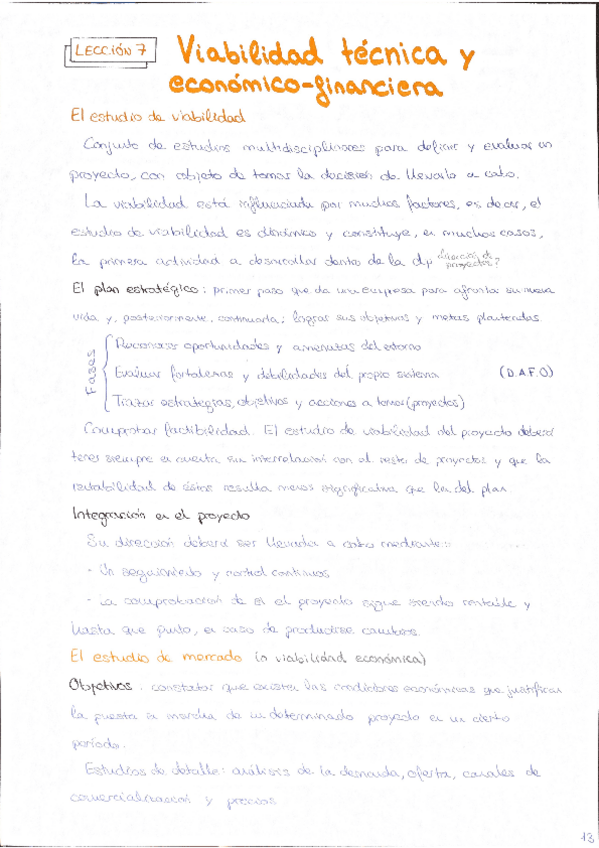 LECCIÓN 7
Viabilidad técnica y
económico-financiera
El estudio de viabilidad
Conjunto de estudios multidisciplinares para definir y evaluar un
proyecto, con objeto de tomar la decisión de llevarlo a cabo.
La viabilidad está influenciada por muchos factores, es decir, el
estudio de viabilidad es dinámico y constituye, en muchos casos,
la primera actividad a desarrollar dentro de la dp dirección de
proyectos?
El plan estratégico: primer paso que da una empresa para afrontar su nueva
vida y, posteriormente, continuarla; lograr sus objetivos y metas planteadas
Fases
Reconocer oportunidades y amenazas del entorno
Evaluar fortalezas y debilidades del propio sistema (D.A.F.O)
Trazar estrategias, objetivos y acciones a tomar (proyectos)
Comprobar factibilidad. El estudio de viabilidad del proyecto deberá
tener siempre en cuenta su interrelación con el resto de proyectos y que la
rentabilidad de éstos resulta menos significativa que la del plan
Integración en el proyecto
Su dirección deberá ser llevada a cabo mediante:
- Un seguimiento y control continuos
- La comprobación de si el proyecto sigue siendo rentable y
hasta que punto, en caso de producirse cambios.
El estudio de mercado (o viabilidad económica)
Objetivos: constatar que existen las condiciones económicas que justifican
la puesta en marcha de un determinado proyecto en un cierto
período.
Estudios de detalle: análisis de la demanda, oferta, canales de
comercialización y precios
13